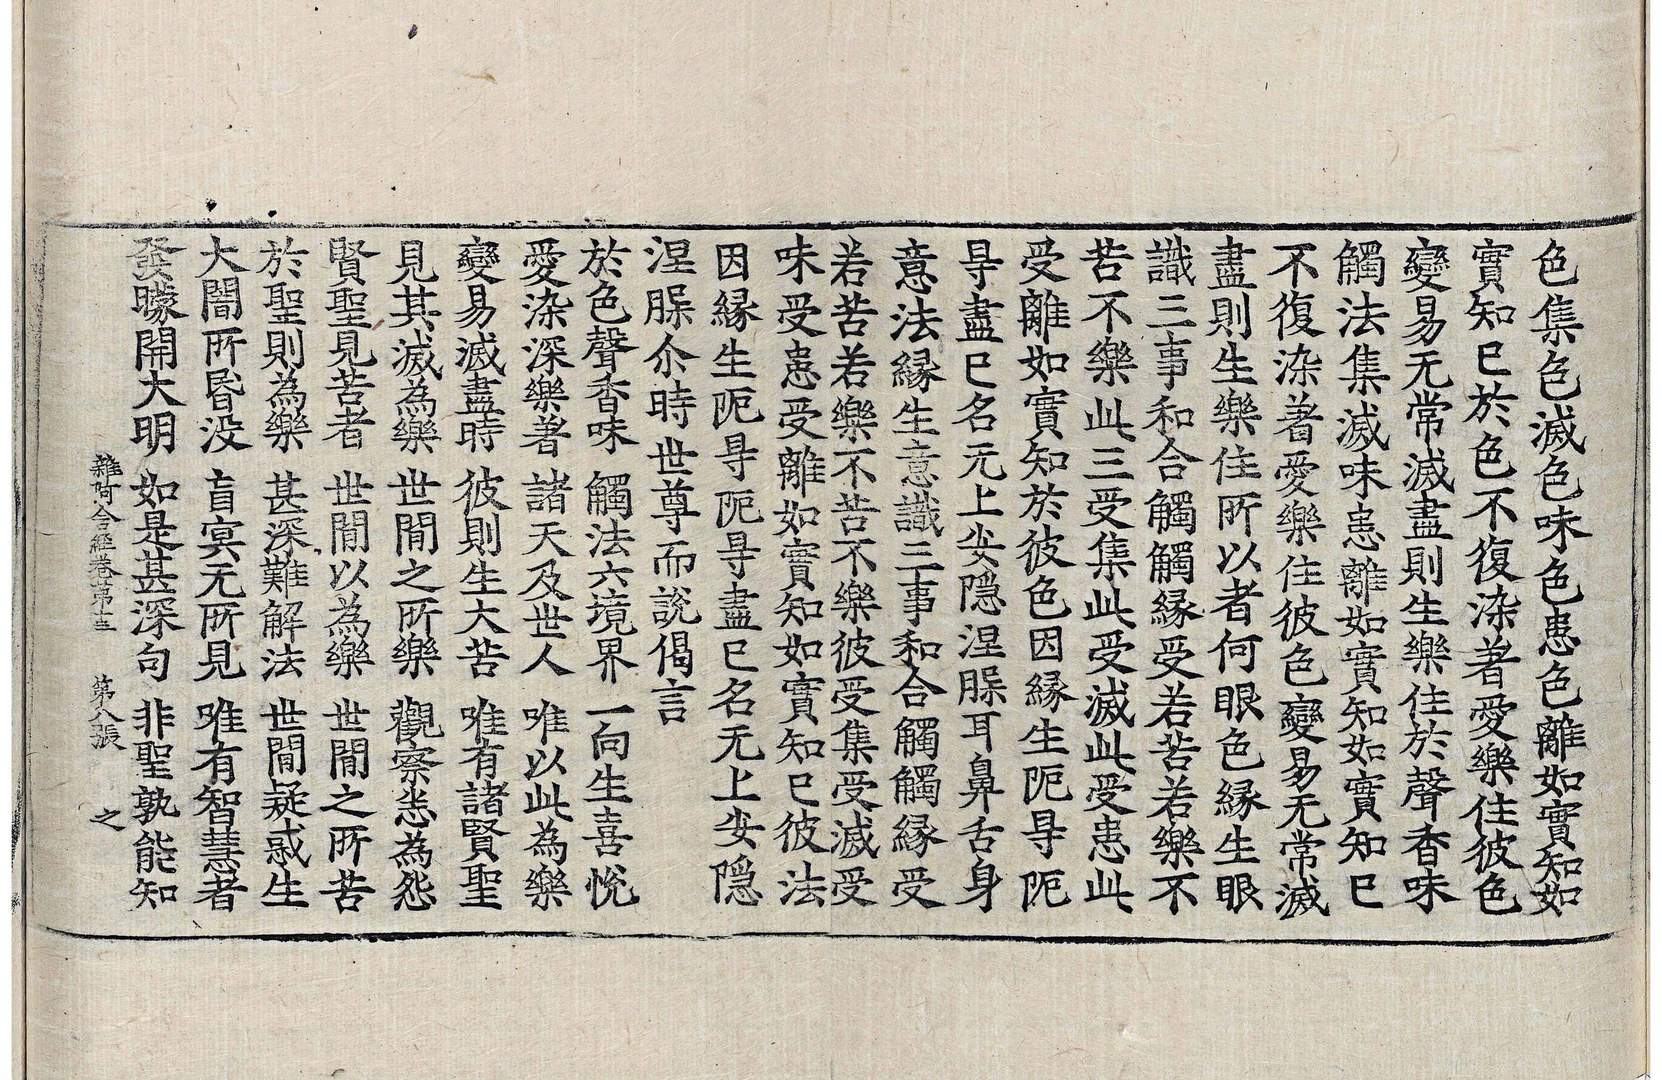 色集色滅色味色患色離如實知如
實知已於色不復染著愛樂住彼色
變易无常滅盡則生樂住於聲香味
觸法集滅味患離如實知如實知已
不復染著愛樂住彼色變易无常滅
盡則生樂住所以者何眼色緣生眼
識三事和合觸觸緣受若苦若樂不
苦不樂此三受集此受滅此受患此
受離如實知於彼色因緣生阨㝵阨
㝵盡已名无上安隱涅槃耳鼻舌身
意法緣生意識三事和合觸觸緣受
若苦若樂不苦不樂彼受集受滅受
味受患受離如實知如實知已彼法
因緣生阨㝵阨㝵盡已名无上安隱
涅槃尒時世尊而說偈言
於色聲香味 觸法六境界 一向生喜悅
愛染深樂著 諸天及世人 唯以此為樂
變易滅盡時 彼則生大苦 唯有諸賢聖
見其滅為樂 世閒之所樂 觀察悉為怨
賢聖見苦者 世閒以為樂 世閒之所苦
於聖則為樂 甚深難解法 世閒疑惑生
大闇所昬沒 盲冥无所見 唯有智慧者
發矇開大明 如是甚深句 非聖孰能知
雜阿含經卷第十三 第八張 之